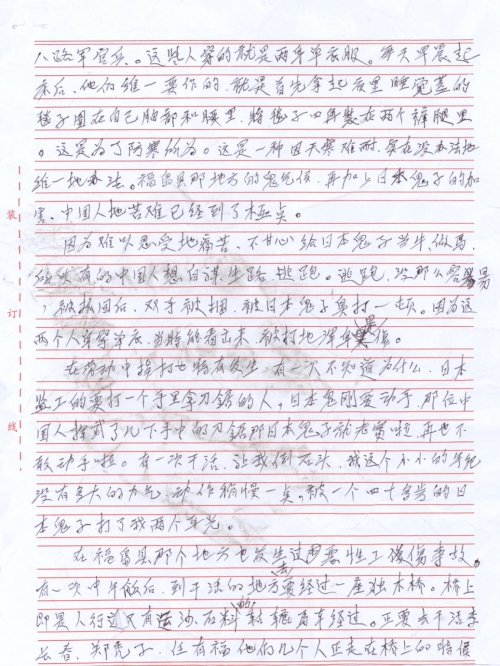 八路军官兵。这些人穿的就是两身单衣服。每天早晨起
床后,他们维一要作的,就是首先拿起夜里睡觉盖的
毯子围在自己胸部和腰里,将毯子四角装在两个裤腿里
。这是为了阿寒所为。这是一种因天寒难耐,实在没办法地
维一地办法。福岛县那地方的鬼气侯,再加上日本鬼子的加
害,中国人地苦难已经到了极点。
因为难以忍受地痛苦,不甘心给日本鬼子当牛做马,
有的中国人想自谋生路逃跑。逃跑,没那么容易
,被抓回后,双手被捆,被日本鬼子臭打一顿。因为这
两个人身穿单衣,当时能看出来,被打地浑身是伤。
在劳动中挨打也时有发生。有一次不知道为什么,日本
监工的要打一个手里拿刀锯的人。日本鬼刚要动手,那位中
国人挥式了几下手中的刀锯那日本鬼子就老实啦,再也不
敢动手啦。有一次干活,让我倒石头,我这个小小的年纪
没有多大的力气,动作稍慢一点,被一个四十多岁的日
本鬼子打了我两个耳光。
在福岛县那个地方也发生过恶性工伤事故。
有一次中午饭后,到干活的地方去要经过一座独木桥。桥上
即是人行道又有运沙石料的轱辘车经过。正要去干活李
长春,郑秃子,任有福他们几个人正走在桥上的时侯
装
订
线